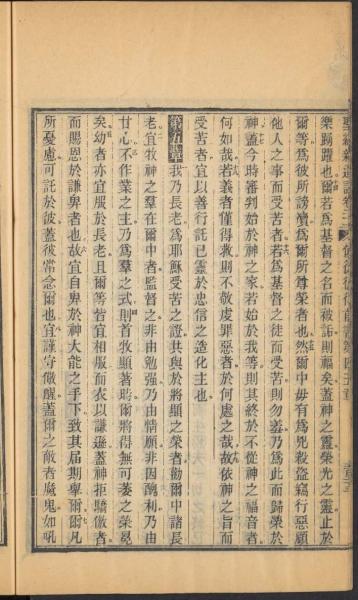 樂踴躍也爾若爲基督之名而被詬則福矣蓋神之靈榮光之靈止於
爾等爲彼所謗讟爲爾所尊榮者也然爾中毋有爲兇殺盜竊行惡顧
他人之事而受苦者若爲基督之徒而受苦則勿羞乃爲此而歸榮於
神蓋今時審判始於神之家若始於我等則其終於不從神之福音者
何如哉若義者僅得救則不敬虔罪惡者於何處之哉故依神之旨而
受苦者宜以善行託己靈於忠信之造化主也
第五章我乃長老爲耶穌受苦之證共與於將顯之榮者勸爾中諸長
老宜牧神之羣在爾中者監督之非由勉强乃由情願非因醜利乃由
甘心不作業之主乃爲羣之式則首牧顯著時爾將得無可萎之榮冕
矣幼者亦宜服於長老且爾等皆宜相服而衣以謙遜蓋神拒驕傲者
而賜恩於謙卑者也故宜自卑於神大能之手下致其屆期舉爾爾凡
所憂慮可託於彼蓋彼常念爾也宜謹守儆醒蓋爾之敵者魔鬼如吼